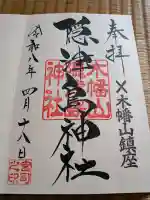 奉拝
木幡山鎮座
隠津島神社
木幡山
神社
令和八年四月十八日